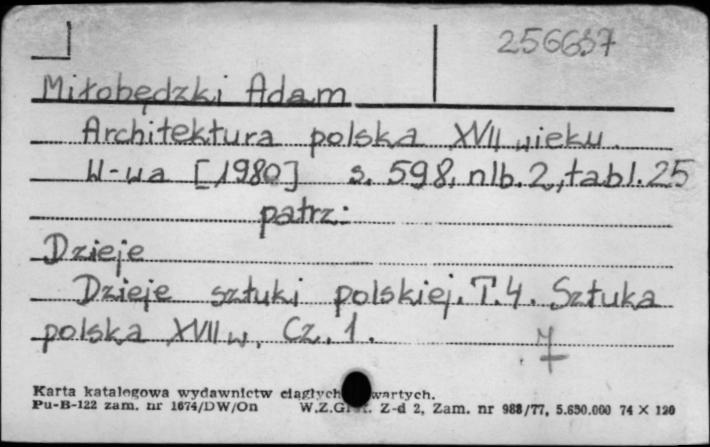 256637
Miłobędzki Adam
Architektura polska XVII wieku.
W-wa [1980] s. 598, nlb. 2, tabl. 25
patrz:
Dzieje
Dzieje sztuki polskiej. T. 4. Sztuka
polska XVII w. Cz. 1.
7
Karta katalogowa wydawnictw ciągłych wartych.
Pu-B-122 zam. nr 1674/DW/On W.Z.Graf. Z-d 2, Zam. nr 988/77, 5.650.000 74 X 120